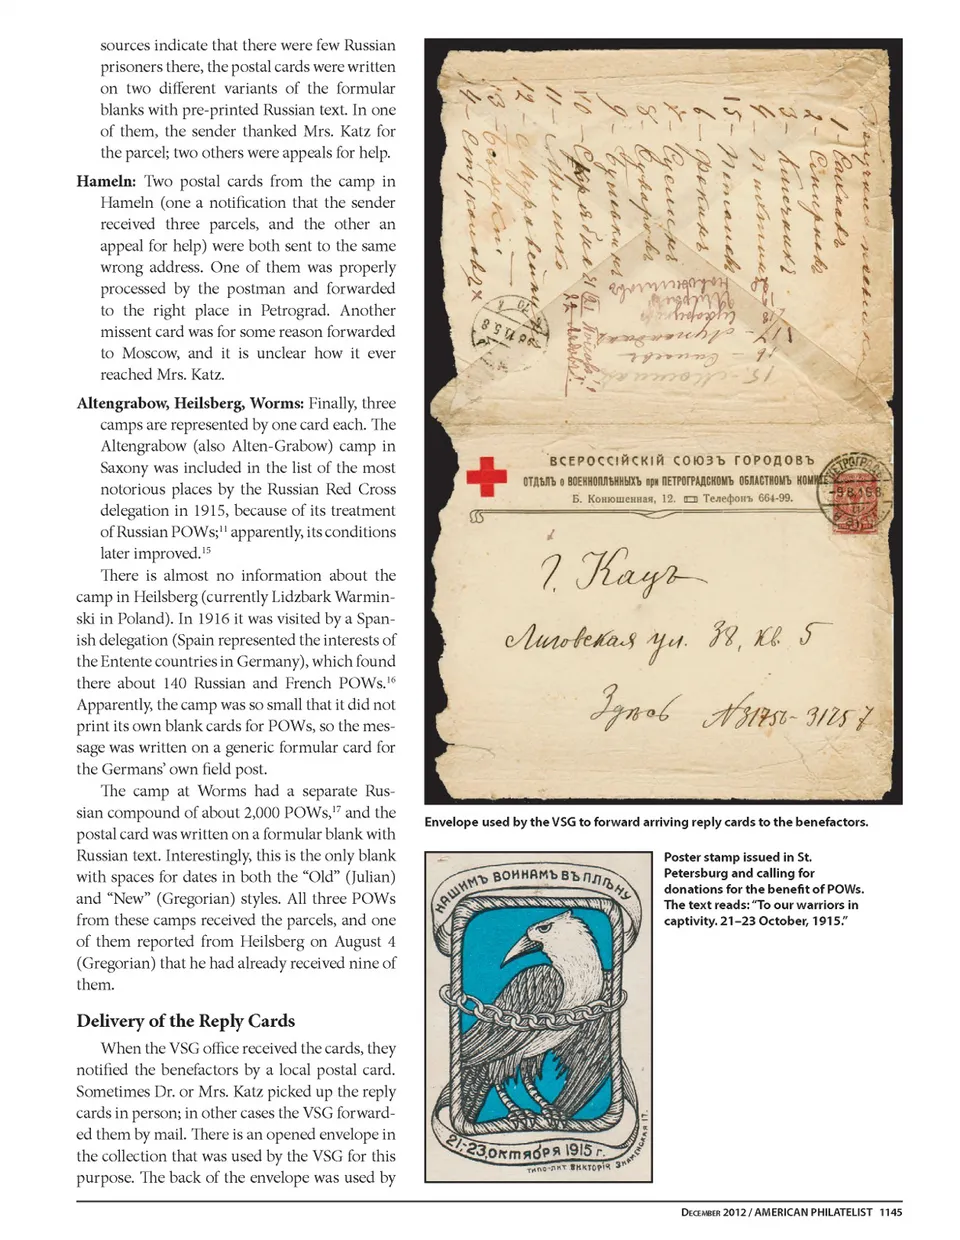 sources indicate that there were few Russian
prisoners there, the postal cards were written
on two different variants of the formular
blanks with pre-printed Russian text. In one
of them, the sender thanked Mrs. Katz for
the parcel; two others were appeals for help.
Hameln: Two postal cards from the camp in
Hameln (one a notification that the sender
received three parcels, and the other an
appeal for help) were both sent to the same
wrong address. One of them was properly
processed by the postman and forwarded
to the right place in Petrograd. Another
missent card was for some reason forwarded
to Moscow, and it is unclear how it ever
reached Mrs. Katz.
Altengrabow, Heilsberg, Worms: Finally, three
camps are represented by one card each. The
Altengrabow (also Alten-Grabow) camp in
Saxony was included in the list of the most
notorious places by the Russian Red Cross
delegation in 1915, because of its treatment
of Russian POWs;11 apparently, its conditions
later improved.15
There is almost no information about the
camp in Heilsberg (currently Lidzbark Warmin-
ski in Poland). In 1916 it was visited by a Span-
ish delegation (Spain represented the interests of
the Entente countries in Germany), which found
there about 140 Russian and French POWs.16
Apparently, the camp was so small that it did not
print its own blank cards for POWs, so the mes-
sage was written on a generic formular card for
the Germans' own field post.
The camp at Worms had a separate Rus-
sian compound of about 2,000 POWs,17 and the
postal card was written on a formular blank with
Russian text. Interestingly, this is the only blank
with spaces for dates in both the “Old” (Julian)
and “New” (Gregorian) styles. All three POWs
from these camps received the parcels, and one
of them reported from Heilsberg on August 4
(Gregorian) that he had already received nine of
them.
Delivery of the Reply Cards
When the VSG office received the cards, they
notified the benefactors by a local postal card.
Sometimes Dr. or Mrs. Katz picked up the reply
cards in person; in other cases the VSG forward-
ed them by mail. There is an opened envelope in
the collection that was used by the VSG for this
purpose. The back of the envelope was used by
ВСЕРОССІЙСКІЙ СОЮЗЪ ГОРОДОВЪ
ОТДѢЛЪ о ВОЕННОПЛѢННЫХЪ при ПЕТРОГРАДСКОМЪ ОБЛАСТНОМЪ
Б. Конюшенная, 12. Телефонъ 664-99.
ПЕТРОГРАДЪ
Г. Кацъ
Лиговская ул. 38, кв. 5
Здѣсь N31756-31257
Envelope used by the VSG to forward arriving reply cards to the benefactors.
НАШИМЪ ВОИНАМЪ ВЪ ПЛѢНУ
21-23 ОКТЯБРЯ 1915 г.
ТИПО-ЛИТ. ВИКТОРІЯ ЗНАМЕНСКАЯ 17.
Poster stamp issued in St.
Petersburg and calling for
donations for the benefit of POWs.
The text reads: “To our warriors in
captivity. 21–23 October, 1915.”
December 2012 / AMERICAN PHILATELIST 1145